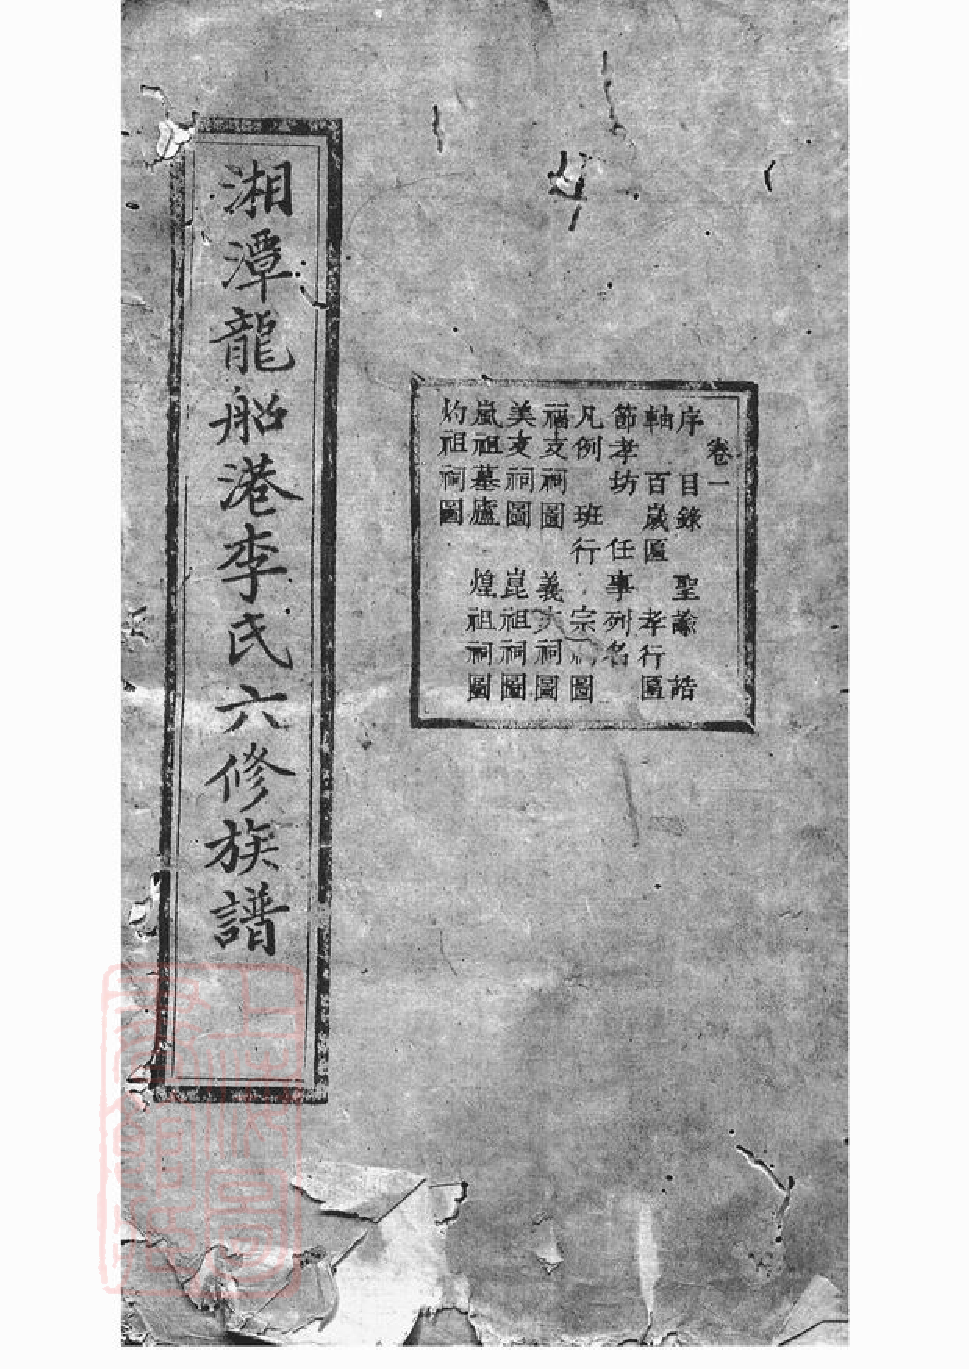 湘潭龍船港李氏六修族譜
卷一
序 目錄 聖諭 誥
軸 百歲匾 孝行匾
節孝坊 任事列名
凡例 班行 宗祠圖
福支祠圖 義支祠圖
美支祠圖 崑祖祠圖
嵐祖墓廬 煌祖祠圖
灼祖祠圖